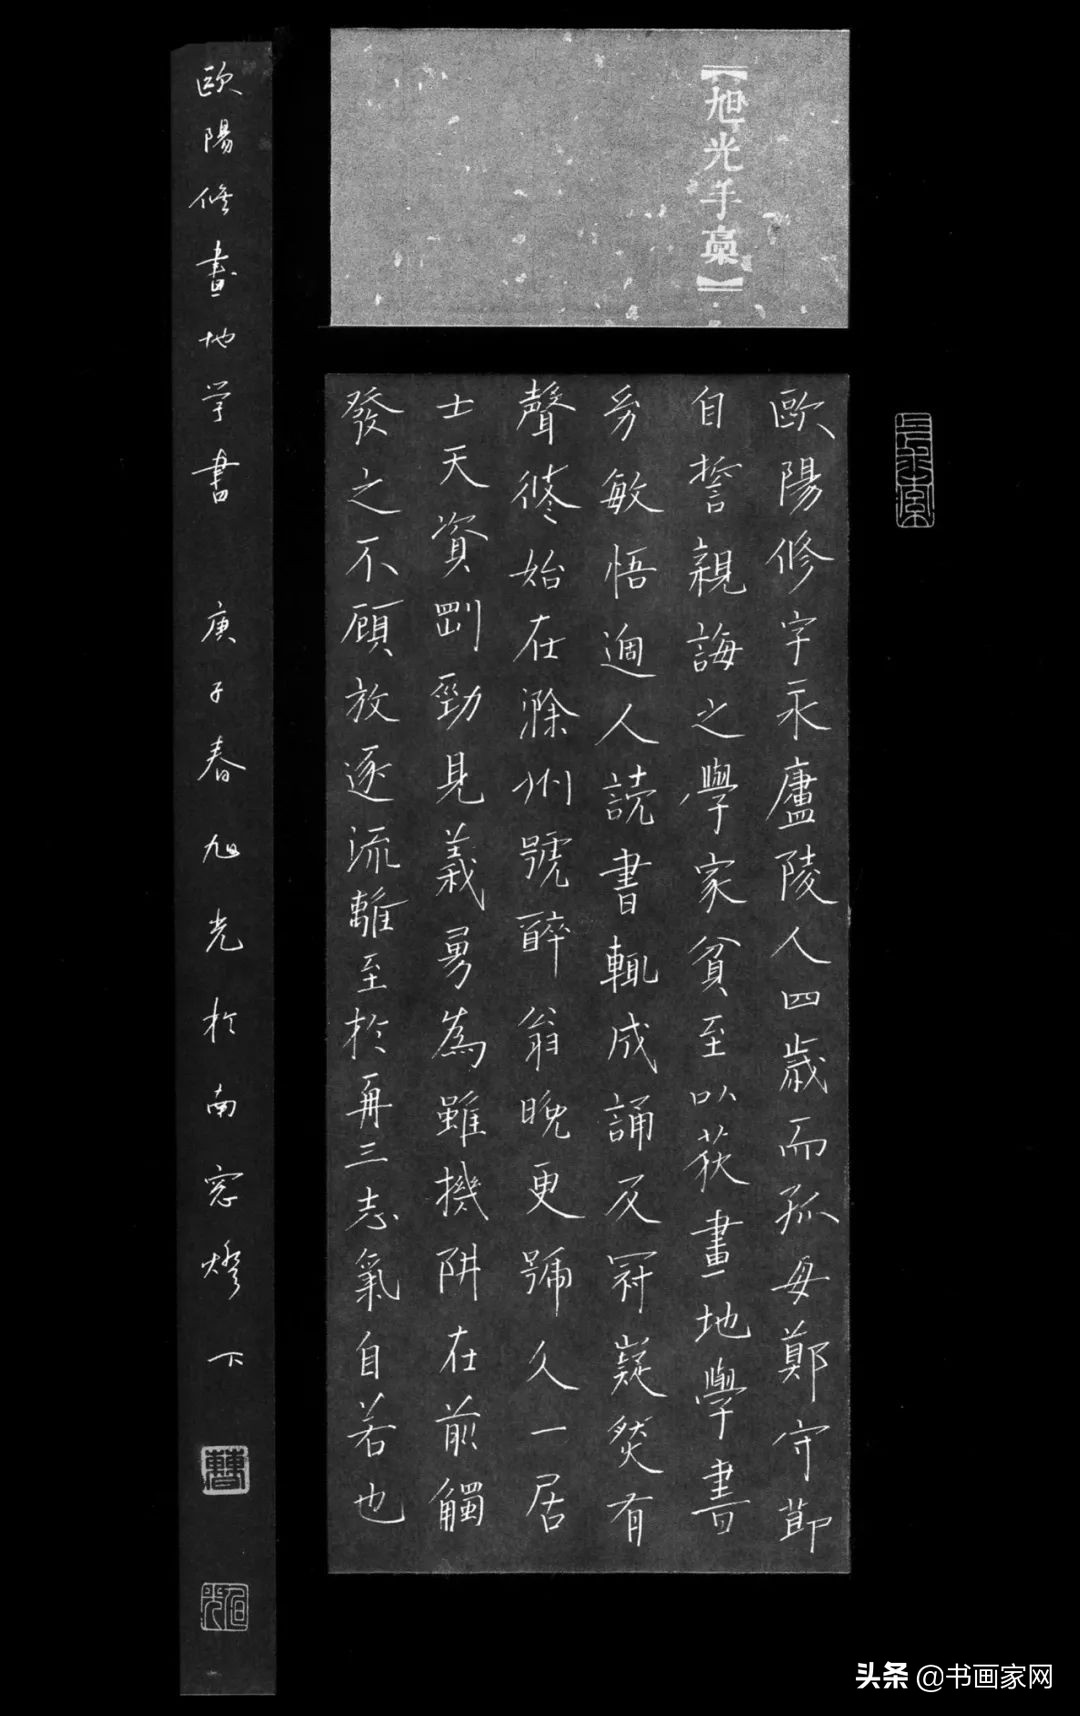 【旭光手稾】
歐陽修字永廬陵人四歲而孤母鄭守節
自誓親誨之學家貧至以荻畫地學書
幼敏悟過人読書輒成誦及冠嶷然有
聲修始在滁州號醉翁晚更號久一居
士天資剛勁見義勇為雖機阱在前觸
發之不顧放逐流離至於再三志氣自若也
歐陽修畫地学書 庚子春旭光於南窓燈下
曹
旭光
头条 @书画家网